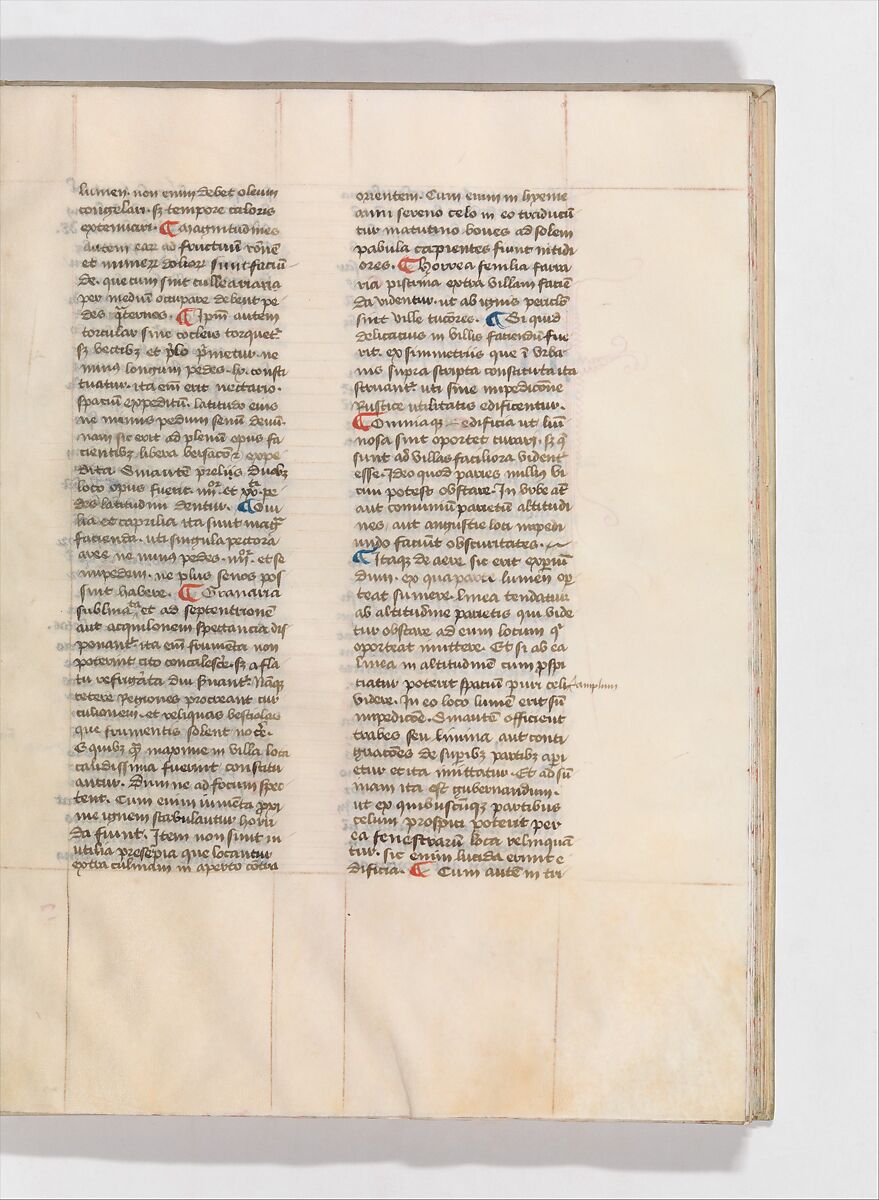 lumen. non enim debet oleum
congelari. sz tempore caloris
extenuari. ¶ Magnitudines
autem ear ad fructuū rōnē
et numerꝝ dolioꝝ sunt faciū
de. que cum sint culleariaria
per mediū occupare debent pe
des q̄ternos. ¶ Ipm̄ autem
torcular sine cocleis torquetr
sz vectibꝫ et p̄lo p̄metur. ne
minus longum pedes. lx. consti
tuatur. ita em̄ erit vectario.
spaciū expeditū. latitudo eius
ne menus pedum senū denū.
nam sic erit ad plenū opus fa
cientibꝫ libera versacōꝝ expe
dita. Sin autē preliis duobꝫ
loco opus fuerit. iiii.or et xx.ta pe
des latitudini dentur. ¶ Oui
lia et caprilia ita sunt mag̅
facienda. uti singula peccora
aree ne minus pedes. iiii.or et se
mipedem. ne plus senos pos
sint habere. ¶ Granaria
sublimata et ad septentrionē
aut acquilonem spectancia dis
ponantr. ita em̄ frumēta non
poterint cito concalescē. sz a fla
tu refrigīata diu s̄uantr. Nāqꝫ
cetere Regiones procreant cur
culionem. et reliquas bestiolas
que frumentis solent nocē.
E quibꝫ q̄ maxime in villa loca
calidissima fuerint constitu
antur. Dum ne ad focum spec
tent. Cum enim iumēta proxi
me ignem stabulantur horri
da fiunt. Item non sunt in
utilia presepia que locantur
extra culinam in aperto contra
orientem. Cum enim in hyeme
anni sereno celo in eo traducū
tur matutino boues ad solem
pabula capientes fiunt nitidi
ores. ¶ Horrea fenilia farra
ria pistrina extra villam faciē
da videntur. ut ab ignis periclo
sint ville tuciores. ¶ Si quid
delicacius in villis faciendū fue
rit. ex simmetriis que ī vrba
nis supra scripta constituta ita
struantr. uti sine impedicōne
Rustice utilitatis edificentur.
¶ Omniaqꝫ edificia ut lūi
nosa sint oportet curari. sz q̄
sunt ad villas faciliora vident̄
esse. Ideo quod paries nulliꝰ vi
cini potest obstare. In vrbe at̄
aut communiū parietū altitudi
nes. aut angustie loci impedi
undo faciūt obscuritates.
¶ Itaqꝫ de aere sic erit expiūi
dum. ex qua parte lumen op̄
teat sumere. linea tendatur
ab altitudine parietis qui vide
tur obstare ad eum locum q̄
oporteat mittere. Et si ab ea
linea in altitudinē cum pspi
ciatur poterit spaciū puri celi amplum
videre. In eo loco lumē erit sn̄
impedicōe. Sin autē officient
trabes seu limina aut conti
gnacōes de supīibꝫ partibꝫ api
etur et ita imittatur. Et ad sū
mam ita est gubernandum.
ut ex quibuscūqꝫ partibus
celum prospici poterit per
ea fenestrarū loca relinquā
tur. sic enim lucida erunt e
dificia. ¶ Cum autē in tri